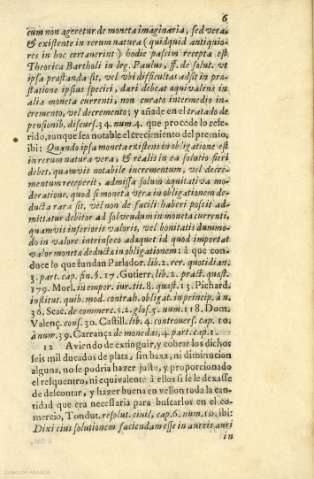 6
cum non ageretur de moneta imaginaria, sed vera,
& existente in rerum natura (quidquid antiquio-
res in hoc certaverint) hodie passim recepta est
Theorica Bartholi in leg. Paulus, ff. de solut. vt
ipsa præstanda sit, vel vbi difficultas adsit in præ-
statione ipsius speciei, dari debeat æquivalens in
alia moneta currenti, non curato intermedio in-
cremento, vel decremento; y añade en el tratado de
pensionib. discurs. 34. num. 4. que procede lo refe-
rido, aunque sea notable el crecimiento del premio,
ibi: Quando ipsa moneta existens in obligatione est
in rerum natura vera, & realis in ea solutio fieri
debet, quamvis notabile incrementum, vel decre-
mentum receperit, admissa solum æquitativa mo-
deratione, quod si moneta vera in obligationem de-
ducta rara sit, vel non de facili haberi possit ad-
mittatur debitor ad solvendum in moneta currenti,
quamvis inferioris valoris, vel bonitatis dummo-
do in valore intrinseco adæquet id quod importat
valor moneta deducta in obligationem: à que con-
duce lo que fundan Parlador. lib. 2. rer. quotidian.
3. part. cap. fin. §. 17. Gutierr. lib. 2. pract. quæst.
179. Morl. in empor. iur. tit. 8. quæst. 13. Pichard.
institut. quib. mod. contrah. obligat. in princip. à n.
36. Scac. de commerc. §. 2. glos. 3. num. 118. Dom.
Valenç. cons. 30. Castill. lib. 4. controvers. cap. 10.
à num. 39. Carrança de monedas, 4. part. cap. 1.
12 Aviendo de extinguir, y cobrar los dichos
seis mil ducados de plata, sin baxa, ni diminucion
alguna, no se podria hazer justo, y proporcionado
el resquentro, ni equivalente à ellos si se le dexasse
de descontar, y hazer buena en vellon toda la can-
tidad que era necessaria para buscarlos en el co-
mercio, Tondut. resolut. civil, cap. 6. num. 10. ibi:
Dixi eius solutionem faciendam esse in aureis, auri
in